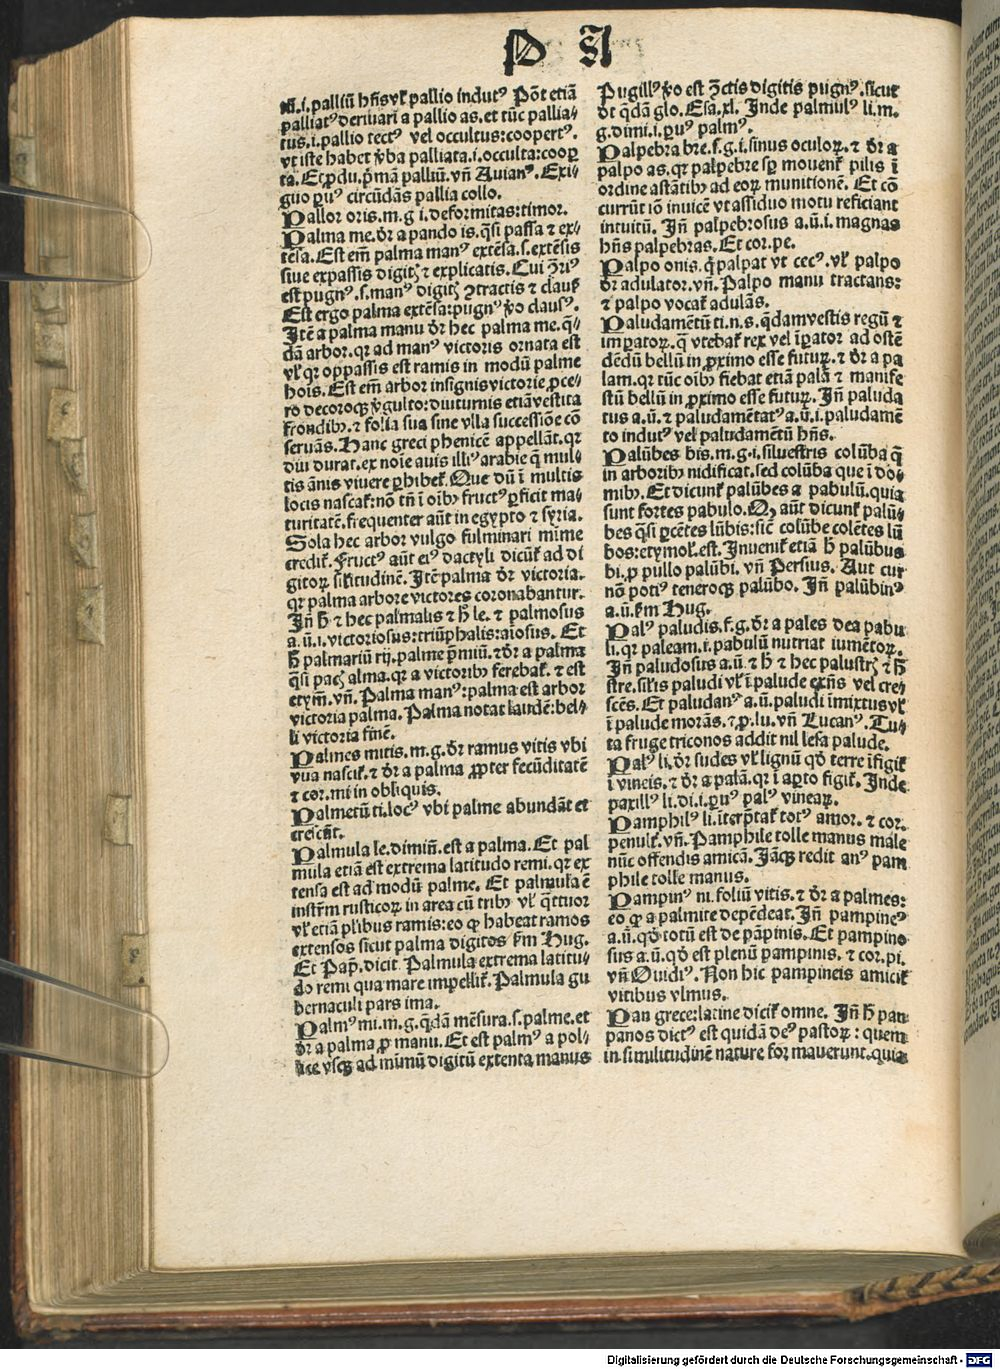 P A
i. palliū hn̄s vl̓ pallio indutꝰ Pōt etiā
palliatꝰ deriuari a pallio as. et tūc pallia⸗
tus. i. pallio tectꝰ vel occultus: coopertꝰ.
vt iste habet v̓ba palliata. i. occulta: cooꝑ
ta. Et ꝓdu. pͥmā palliū. vn̄ Auianꝰ. Exi⸗
guo ꝑuꝰ circūdās pallia collo.
Pallor oris. m. g i. deformitas: timor.
Palma me. dr̄ a pando is. qͣsi passa ⁊ ex⸗
tēsa. Est em̄ palma manꝰ extēsa. s. extēsis
siue expassis digitꝭ ⁊ explicatis. Cui ꝯ̄riꝰ
est pugnꝰ. s. manꝰ digitꝭ ꝯtractis ⁊ clausꝭ
Est ergo palma extēsa: pugnꝰ v̓o clausꝰ.
Itē a palma manu dr̄ hec palma me. qͣ⸗
dā arbor. qꝛ ad manꝰ victoris ornata est
vl̓ qꝛ oppassis est ramis in modū palme
hoīs. Est em̄ arbor insignis victorie ꝓce⸗
ro decoroqꝫ v̓gulto: diuturnis etiā vestita
frondibꝰ. ⁊ folia sua sine vlla successiōe cō
seruās. Hanc greci phenicē appellāt. qꝛ
diu durat. ex noīe auis illiꝰ arabie q̄ mul⸗
tis ānis viuere ꝑhibet᷑. Que dū ī multis
locis nascat᷑: nō tn̄ ī oībꝰ fructꝰ ꝑficit ma⸗
turitatē. frequenter aūt in egypto ⁊ syria.
Sola hec arbor vulgo fulminari mīme
credit᷑. Fructꝰ aūt eiꝰ dactyli dicūt᷑ ad di
gitoꝝ sil̓itudinē. Itē palma dr̄ victoria.
qꝛ palma arbore victores coronabantur.
Iñ h̄ ⁊ hec palmalis ⁊ h̄ le. ⁊ palmosus
a. ū. i. victoriosus: triūphalis: aīosus. Et
h̄ palmariū rij. palme p̄miū. ⁊ dr̄ a palma
qͣsi pacꝭ alma. qꝛ a victoribꝰ ferebat᷑. ⁊ est
etym̄. vn̄. Palma manꝰ: palma est arbor
victoria palma. Palma notat laudē: bel⸗
li victoria finē.
Palmes mitis. m. g. dr̄ ramus vitis vbi
vua nascit᷑. ⁊ dr̄ a palma ꝓpter fecūditatē
⁊ cor. mi in obliquis.
Palmetū ti. locꝰ vbi palme abundāt et
crescūt.
Palmula le. dimiñ. est a palma. Et pal
mula etiā est extrema latitudo remi. qꝛ ex
tensa est ad modū palme. Et palmula ē
instr̄m rusticoꝝ in area cū tribꝰ vl̓ qͣttuor
vl̓ etiā pl̓ibus ramis: eo ꝙ habeat ramos
extensos sicut palma digitos ẜm Hug.
Et Pap̄. dicit Palmula extrema latitu⸗
do remi qua mare impellit᷑. Palmula gu
bernaculi pars ima.
Palmꝰ mi. m. g. qͣdā mēsura. s. palme. et
dr̄ a palma ꝓ manu. Et est palmꝰ a pol⸗
lice vsqꝫ ad mīmū digitū extenta manus
Pugillꝰ v̓o est ꝯ̄ctis digitis pugnꝰ. sicut
dt̄ qͣdā glo. Esa. xl. Inde palmulꝰ li. m.
g. dimi. i. ꝑuꝰ palmꝰ.
Palpebra bre. f. g. i. sinus oculoꝝ. ⁊ dr̄ a
palpo as. qꝛ palpebre sꝑ mouent᷑ pilis ī
ordine astātibꝰ ad eoꝝ munitionē. Et cō
currūt iō inuicē vt assiduo motu reficiant
intuitū. Iñ palpebrosus a. ū. i. magnas
hn̄s palpebras. Et cor. pe.
Palpo onis. q̓ palpat vt cecꝰ. vl̓ palpo
dr̄ adulator. vn̄. Palpo manu tractans:
⁊ palpo vocat᷑ adulās.
Paludamētū ti. n. s. qͣdam vestis regū ⁊
imꝑatoꝝ. qͣ vtebat᷑ rex vel īꝑator ad ostē
dēdū bellū in ꝓximo esse futuꝝ. ⁊ dr̄ a pa
lam. qꝛ tūc oībꝰ fiebat etiā palā ⁊ manife
stū bellū in ꝓximo esse futuꝝ. Iñ paluda
tus a. ū. ⁊ paludamētatꝰ a. ū. i. paludamē
to indutꝰ vel paludamētū hn̄s.
Palūbes bis. m. g. i. siluestris colūba q̄
in arboribꝰ nidificat. sed colūba que ī do⸗
mibꝰ. Et dicunt᷑ palūbes a pabulū. quia
sunt fortes pabulo. Qꝫ aūt dicunt᷑ palū⸗
bes qͣsi ꝑcētes lūbis: sic̄ colūbe colētes lū
bos: etymol̓. est. Inuenit᷑ etiā h̄ palūbus
bi. ꝓ pullo palūbi. vn̄ Persius. Aut cur
nō potiꝰ teneroqꝫ palūbo. Iñ palūbinꝰ
a. ū. ẜm Hug.
Palꝰ paludis. f. g. dr̄ a pales dea pabu
li. qꝛ paleam. i. pabulū nutriat iumētoꝝ.
Iñ paludosus a. ū ⁊ h̄ ⁊ hec palustrꝭ ⁊ h̄
stre. sil̓is paludi vl̓ ī palude exn̄s vel cre⸗
scēs. Et paludanꝰ a. ū. paludi īmixtus vl̓
ī palude morās. ⁊ ꝓ. lu. vn̄ Lucanꝰ. Tu⸗
ta fruge triconos addit nil lesa palude.
Palꝰ li. dr̄ sudes vl̓ lignū qd̓ terre īfigit᷑
ī vineis. ⁊ dr̄ a palā. qꝛ ī aꝑto figit᷑. Inde
paxillꝰ li. di. i. ꝑuꝰ palꝰ vineaꝝ.
Pamphilꝰ li. iterp̄tat᷑ totꝰ amor. ⁊ cor.
penult᷑. vn̄. Pamphile tolle manus male
nūc offendis amicā. Iāqꝫ redit anꝰ pam
phile tolle manus.
Pampinꝰ ni. foliū vitis. ⁊ dr̄ a palmes:
eo ꝙ a palmite depēdeat. Iñ pampineꝰ
a. ū. qd̓ totū est de pāpinis. Et pampino
sus a. ū. qd̓ est plenū pampinis. ⁊ cor. pi.
vn̄ Ouidiꝰ. Non hic pampineis amicit᷑
vitibus vlmus.
Pan grece: latine dicit᷑ omne. Iñ h̄ pan
panos dictꝰ est quidā deꝰ pastoꝝ: quem
in similitudinē nature formauerunt. quia
Digitalisierung gefördert durch die Deutsche Forschungsgemeinschaft - DFG